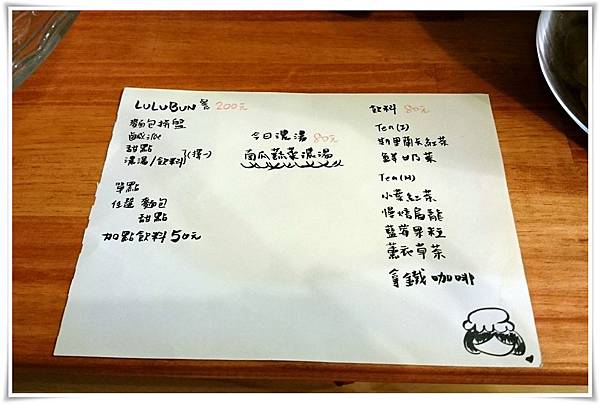 LULUBUN 餐 200元
麵包拼盤
鹹派
甜點
濃湯/飲料 (擇一)
單點
任選 麵包
甜點
加點飲料50元
今日濃湯 80元
南瓜蔬菜濃湯
飲料 80元
Tea(I)
斯里蘭卡紅茶
鮮奶茶
Tea(H)
小葉紅茶
慢烤烏龍
藍莓果粒
薰衣草茶
拿鐵咖啡